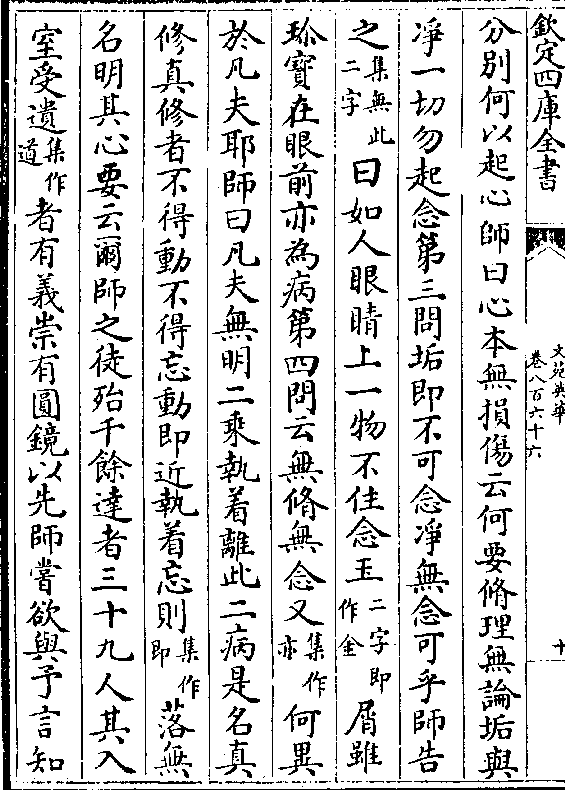 欽定四庫全書
文苑英華
卷八百六十六
十
分别何以起心師曰心本無損傷云何要脩理無論垢與
凈一切勿起念第三問垢即不可念凈無念可乎師告
之集無此二字曰如人眼睛上一物不住念玉二字即作金屑雖
珎寳在眼前亦為病第四問云無脩無念又集作亦何異
於凡夫耶師曰凡夫無明二乘執着離此二病是名真
修真修者不得動不得忘動即近執着忘則集作即落無
名明其心要云爾師之徒殆千餘達者三十九人其入
室受遺集作道者有義崇有圓鏡以先師嘗欲與予言知